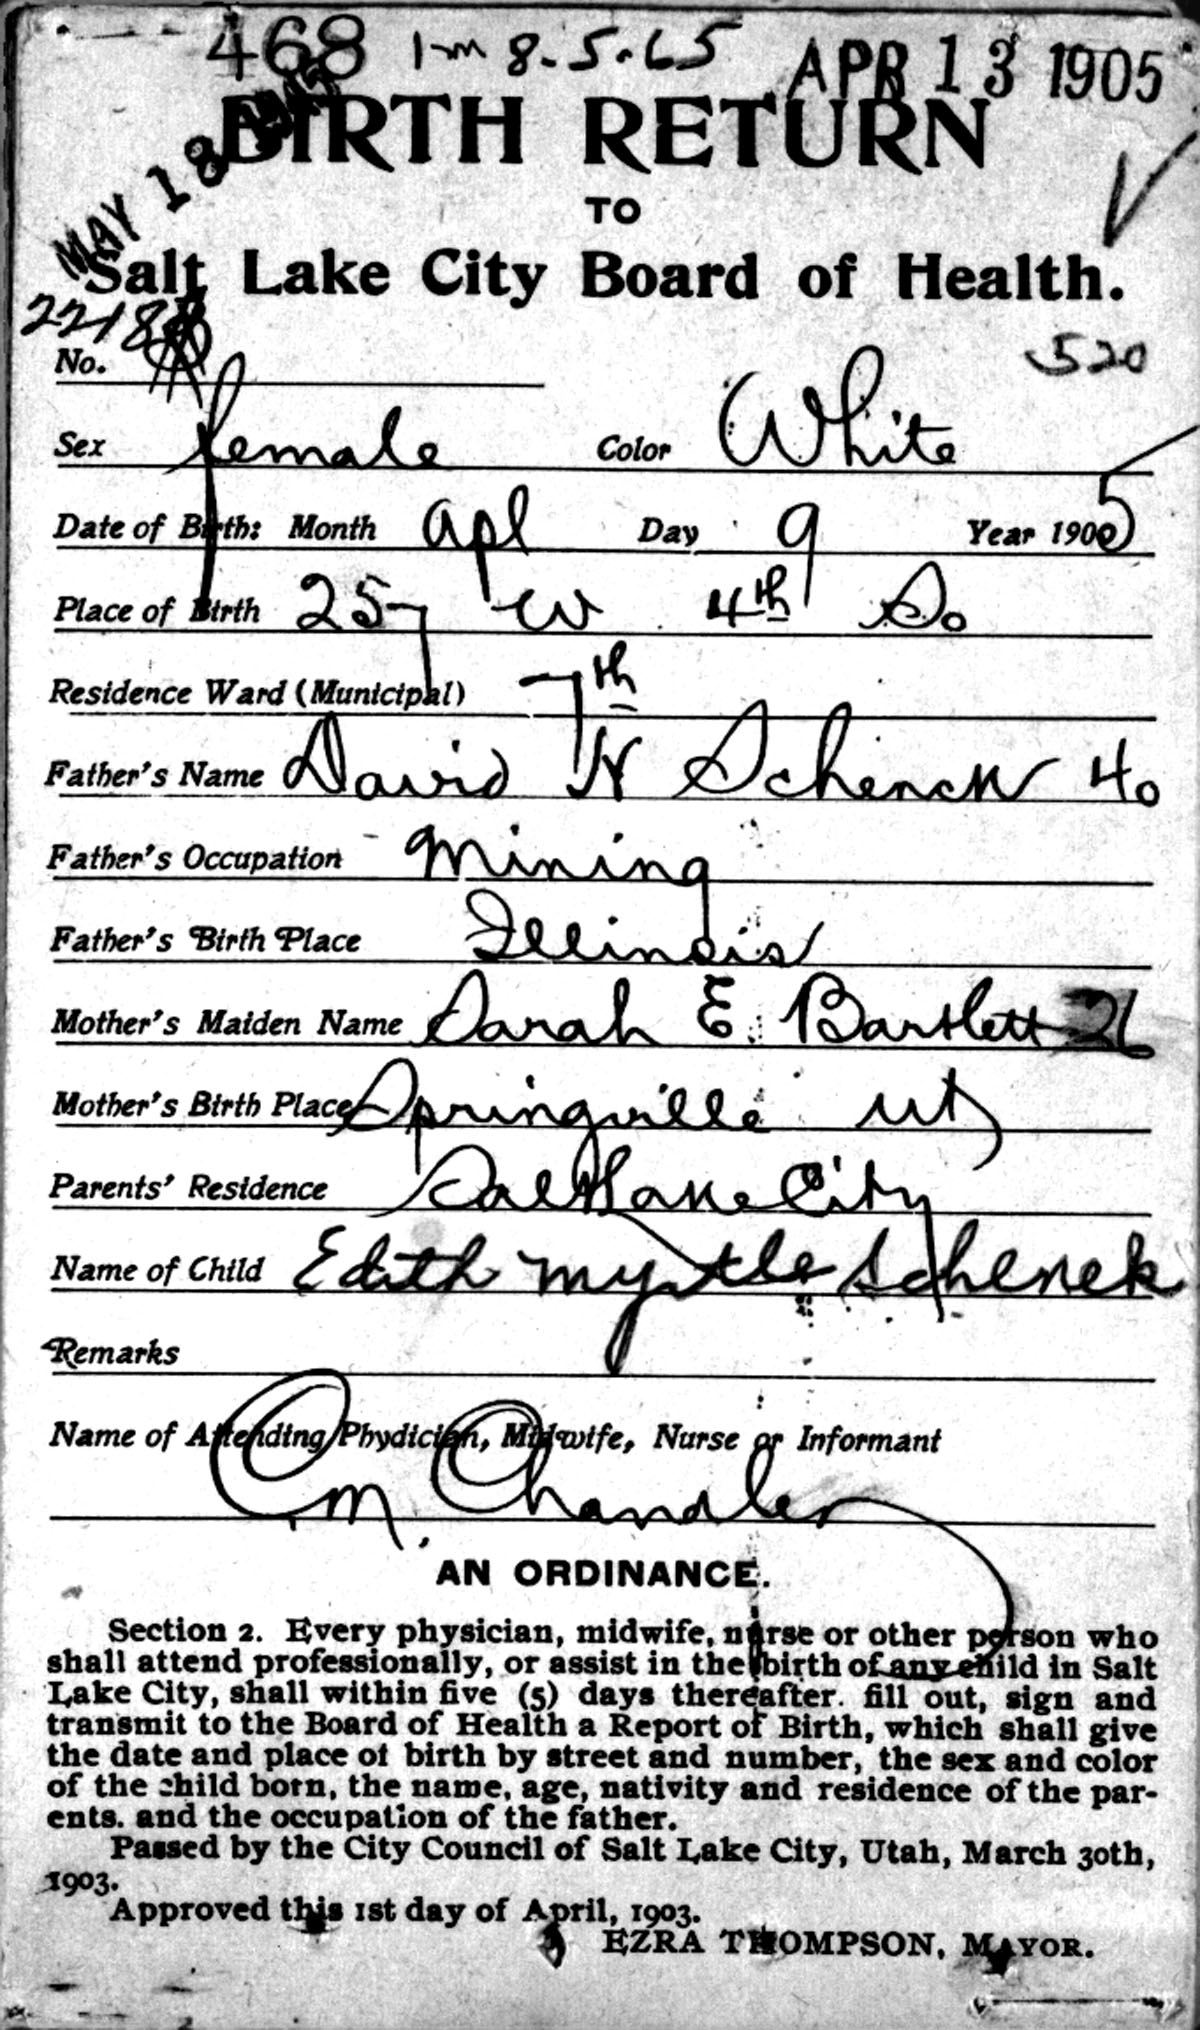 468 1-m 8.5.65 APR 13 1905
BIRTH RETURN
TO
MAY 18
Salt Lake City Board of Health.
2218
520
No.
Sex female Color White
Date of Birth: Month apl Day 9 Year 1905
Place of Birth 257 W 4th So
Residence Ward (Municipal) 7th
Father's Name David N Schenck 40
Father's Occupation Mining
Father's Birth Place Illinois
Mother's Maiden Name Sarah E Bartlett 26
Mother's Birth Place Springville Ut
Parents' Residence Salt Lake City
Name of Child Edith Myrtle Schenck
Remarks
Name of Attending Phydician, Midwife, Nurse or Informant
C.M. Chandler
AN ORDINANCE.
Section 2. Every physician, midwife, nurse or other person who
shall attend professionally, or assist in the birth of any child in Salt
Lake City, shall within five (5) days thereafter. fill out, sign and
transmit to the Board of Health a Report of Birth, which shall give
the date and place of birth by street and number, the sex and color
of the child born, the name, age, nativity and residence of the par-
ents. and the occupation of the father.
Passed by the City Council of Salt Lake City, Utah, March 30th,
1903.
Approved this 1st day of April, 1903.
EZRA THOMPSON, MAYOR.